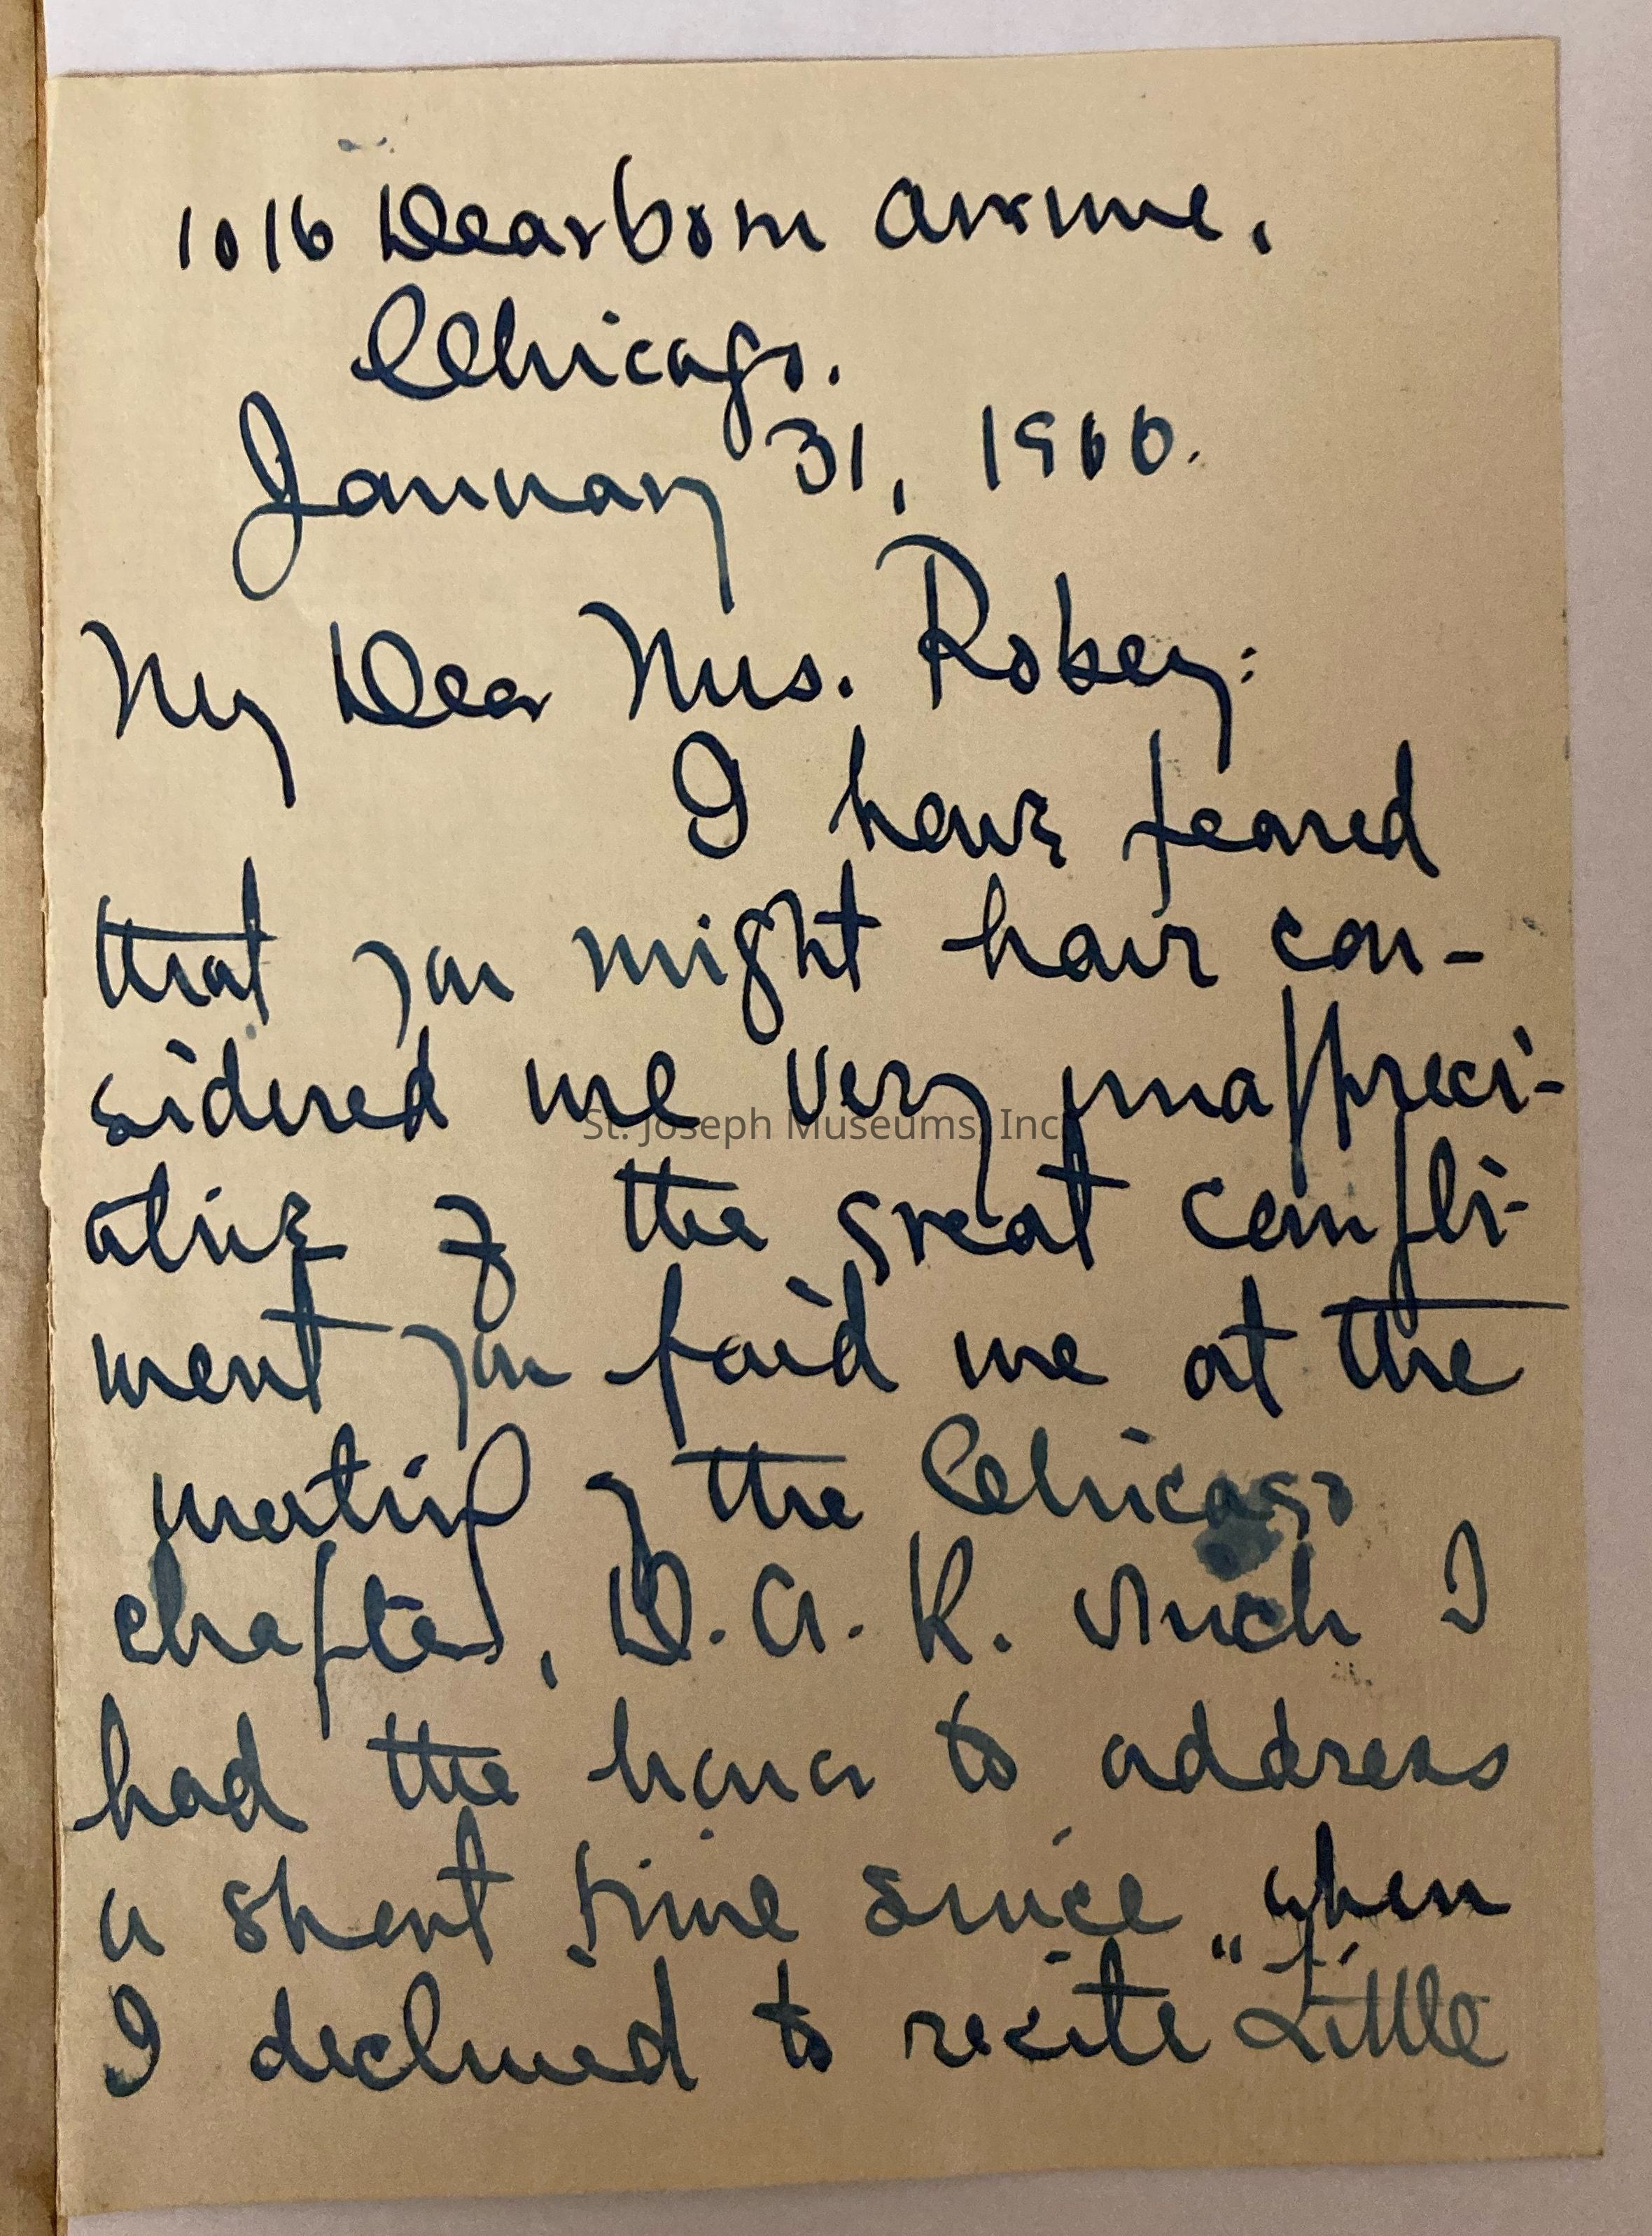 1016 Dearborn Avenue.
Chicago.
January 31, 1900.
My Dear Mrs. Robey:
I have feared
that you might have con-
sidered me very unappreci-
ative of the great compli-
ment you paid me at the
meeting of the Chicago
chapter, D.A.R. which I
had the honor to address
a short time since when
I declined to recite "Little
St. Joseph Museums, Inc.